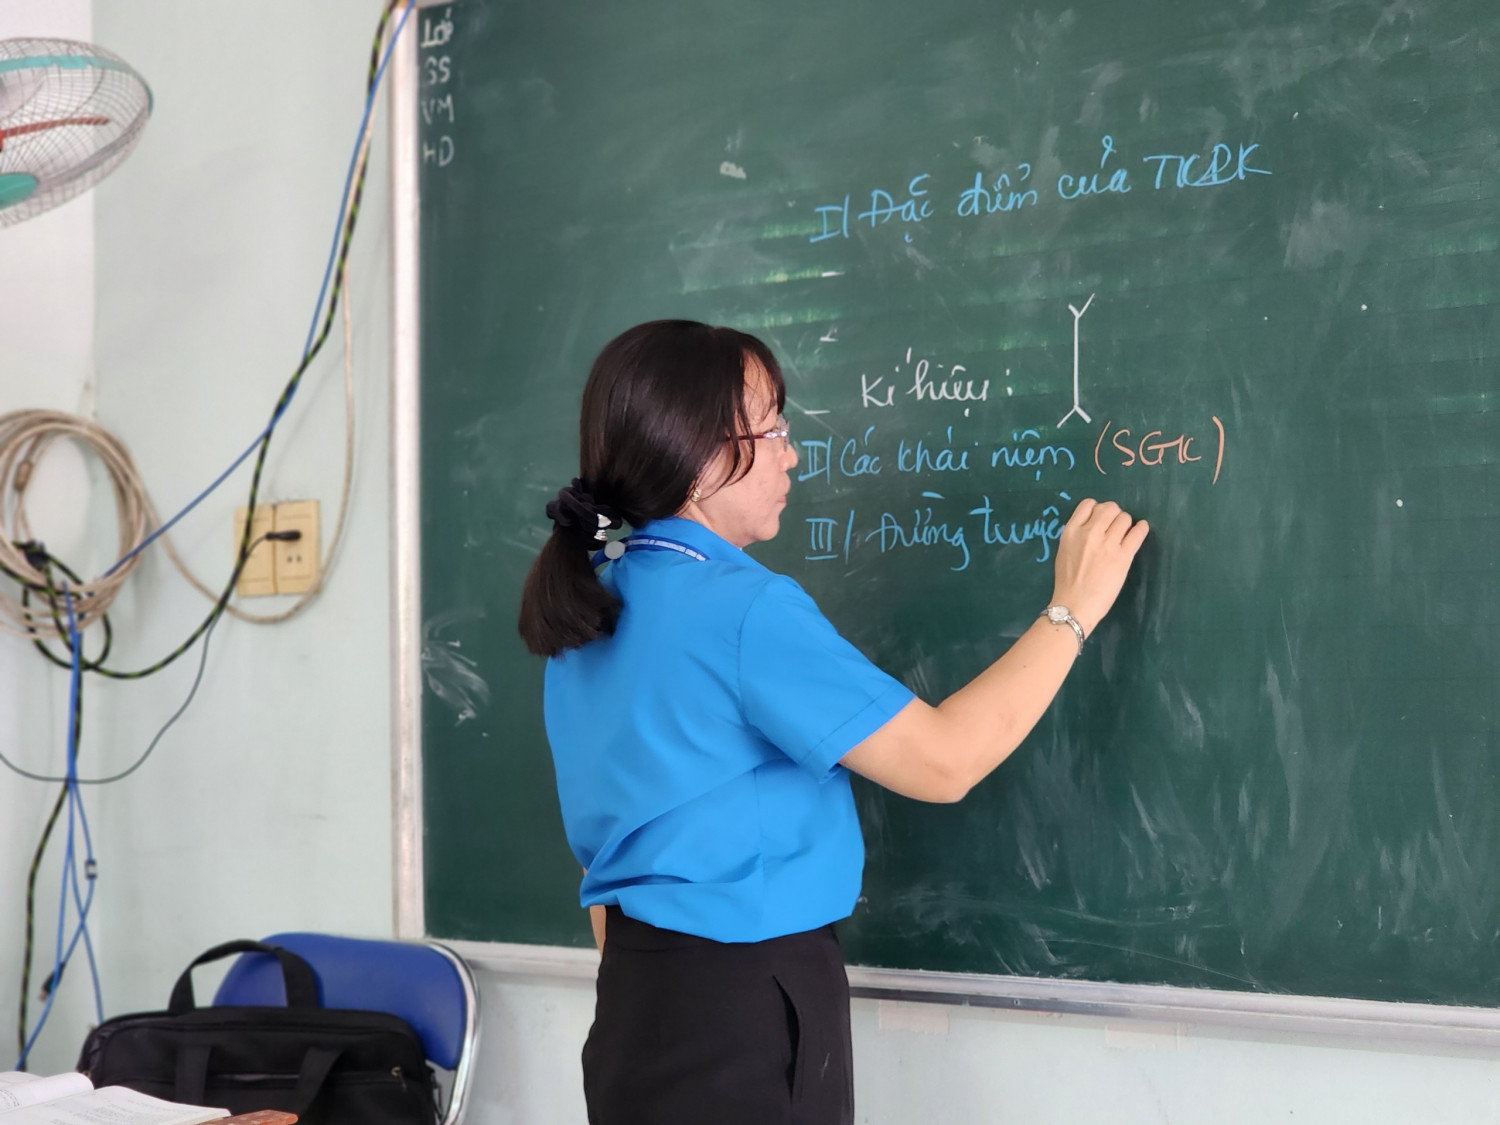 Lớp
SS
VM
HD
I/ Đặc điểm của TKPK
Kí hiệu:
II/ Các khái niệm (SGK)
III/ Đường truyề